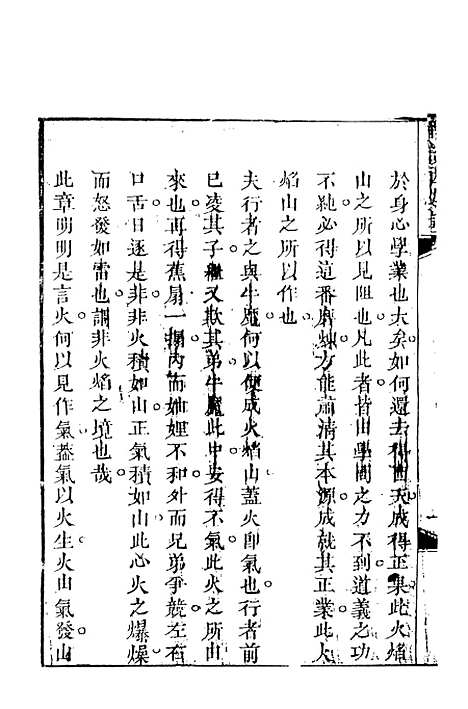 於身心學業也大矣如何還去得西天成得正果此火焰
山之所以見阻也凡此者皆由學問之力不到道義之功
不純必得這番磨煉方能肅清其本源成就其正業此火
焰山之所以作也
夫行者之與牛魔何以便成火焰山蓋火卽氣也行者前
已凌其子繼又欺其弟牛魔此中安得不氣此火之所由
來也再得蕉扇一搧內而妯娌不和外而兄弟爭競左右
口舌日逐是非非火積如山正氣積如山此心火之爆燥
而怒發如雷也謂非火焰之境也哉
此章明明是言火何以見作氣蓋氣以火生火由氣發山